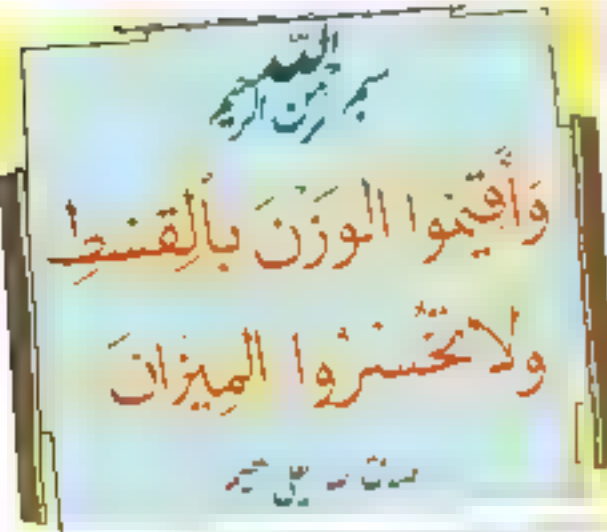 بسم الله الرحمن الرحيم
وَأَقِيمُوا الوَزْنَ بِالقِسْطِ
وَلَا تُخْسِرُوا المِيزَانَ